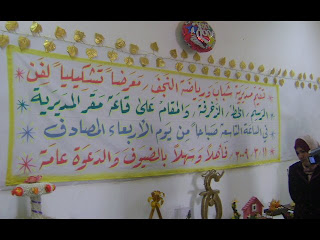 تقيم مديرية شباب ورياضة النجف / معرضاً تشكيلياً لفن
الرسم / الخط / الزخرفة / والمقام على قاعة مقر المديرية
في الساعة التاسعة صباحاً من يوم الأربعاء المصادف
١١ / ٣ / ٢٠٠٩ فأهلاً وسهلاً بالضيوف والدعوة عامة